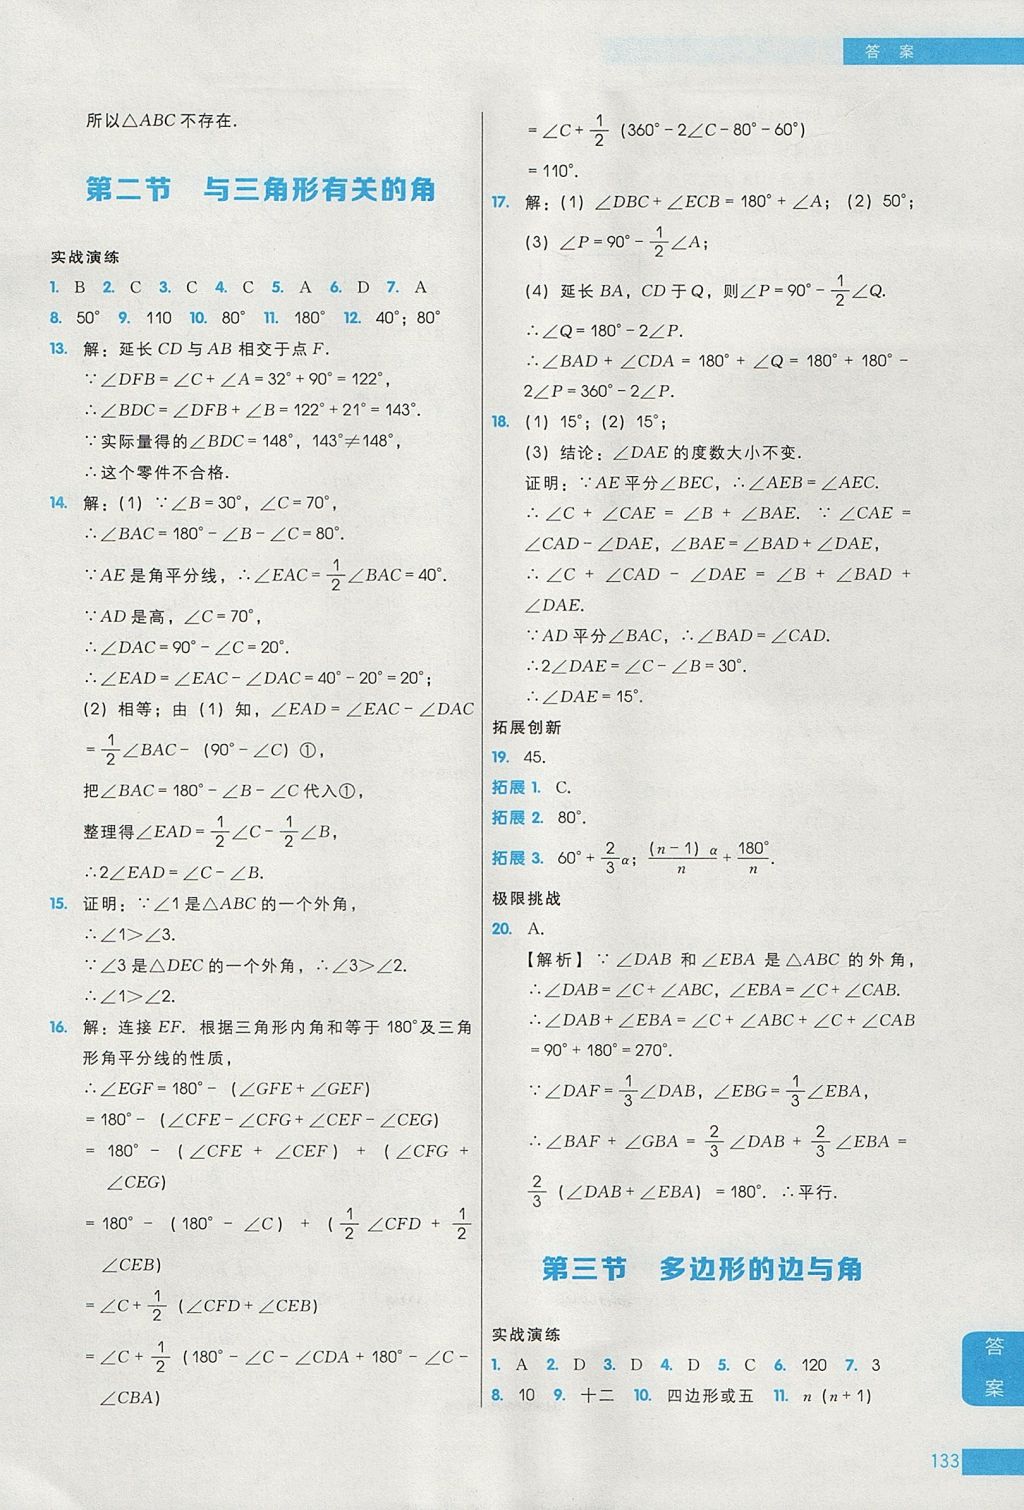 答 案
所以△ABC不存在.
第二节 与三角形有关的角
实战演练
1. B 2. C 3. C 4. C 5. A 6. D 7. A
8. 50° 9. 110 10. 80° 11. 180° 12. 40°；80°
13. 解：延长CD与AB相交于点F.
∵∠DFB=∠C+∠A=32°+90°=122°，
∴∠BDC=∠DFB+∠B=122°+21°=143°.
∵实际量得的∠BDC=148°，143°≠148°，
∴这个零件不合格.
14. 解：(1) ∵∠B=30°，∠C=70°，
∴∠BAC=180°-∠B-∠C=80°.
∵AE是角平分线，∴∠EAC=1/2∠BAC=40°.
∵AD是高，∠C=70°，
∴∠DAC=90°-∠C=20°.
∴∠EAD=∠EAC-∠DAC=40°-20°=20°；
(2) 相等；由 (1) 知，∠EAD=∠EAC-∠DAC
=1/2∠BAC- (90°-∠C) ①，
把∠BAC=180°-∠B-∠C代入①，
整理得∠EAD=1/2∠C-1/2∠B，
∴2∠EAD=∠C-∠B.
15. 证明：∵∠1是△ABC的一个外角，
∴∠1>∠3.
∵∠3是△DEC的一个外角，∴∠3>∠2.
∴∠1>∠2.
16. 解：连接EF. 根据三角形内角和等于180°及三角
形角平分线的性质，
∴∠EGF=180°- (∠GFE+∠GEF)
=180°- (∠CFE-∠CFG+∠CEF-∠CEG)
= 180°- (∠CFE + ∠CEF) + (∠CFG +
∠CEG)
=180°- (180°-∠C) + (1/2∠CFD+1/2
∠CEB)
=∠C+1/2 (∠CFD+∠CEB)
=∠C+1/2 (180°-∠C-∠CDA+180°-∠C-
∠CBA)
=∠C+1/2 (360°-2∠C-80°-60°)
=110°.
17. 解：(1) ∠DBC+∠ECB=180°+∠A；(2) 50°；
(3) ∠P=90°-1/2∠A；
(4) 延长BA，CD于Q，则∠P=90°-1/2∠Q.
∴∠Q=180°-2∠P.
∴∠BAD+∠CDA=180°+∠Q=180°+180°-
2∠P=360°-2∠P.
18. (1) 15°；(2) 15°；
(3) 结论：∠DAE的度数大小不变.
证明：∵AE平分∠BEC，∴∠AEB=∠AEC.
∴∠C+∠CAE=∠B+∠BAE. ∵∠CAE=
∠CAD-∠DAE，∠BAE=∠BAD+∠DAE，
∴∠C+∠CAD-∠DAE=∠B+∠BAD+
∠DAE.
∵AD平分∠BAC，∴∠BAD=∠CAD.
∴2∠DAE=∠C-∠B=30°.
∴∠DAE=15°.
拓展创新
19. 45.
拓展1. C.
拓展2. 80°.
拓展3. 60°+2/3α；(n-1)α/n+180°/n.
极限挑战
20. A.
【解析】∵∠DAB和∠EBA是△ABC的外角，
∴∠DAB=∠C+∠ABC，∠EBA=∠C+∠CAB.
∴∠DAB+∠EBA=∠C+∠ABC+∠C+∠CAB
=90°+180°=270°.
∵∠DAF=1/3∠DAB，∠EBG=1/3∠EBA，
∴∠BAF+∠GBA=2/3∠DAB+2/3∠EBA=
2/3 (∠DAB+∠EBA) =180°. ∴平行.
第三节 多边形的边与角
实战演练
1. A 2. D 3. D 4. D 5. C 6. 120 7. 3
8. 10 9. 十二 10. 四边形或五 11. n (n+1)
答
案
133